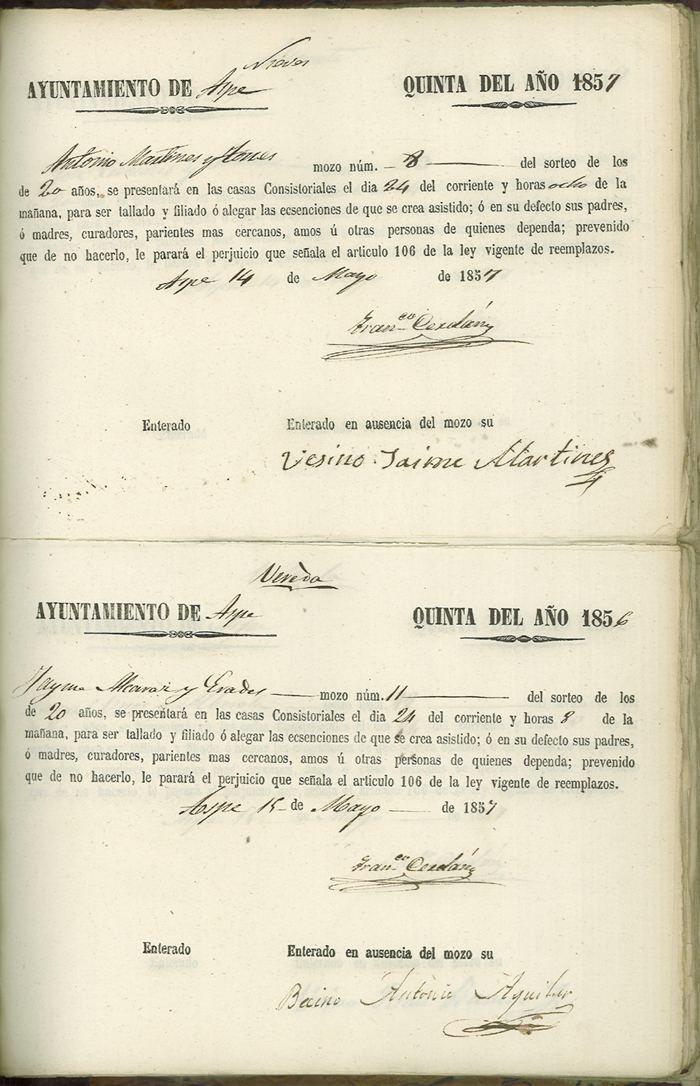 Nieves
AYUNTAMIENTO DE Aspe
QUINTA DEL AÑO 1857
Antonio Martines y Torres mozo núm. 8 del sorteo de los
de 20 años, se presentará en las casas Consistoriales el dia 24 del corriente y horas ocho de la
mañana, para ser tallado y filiado ó alegar las ecsenciones de que se crea asistido; ó en su defecto sus padres,
ó madres, curadores, parientes mas cercanos, amos ú otras personas de quienes dependa; prevenido
que de no hacerlo, le parará el perjuicio que señala el articulo 106 de la ley vigente de reemplazos.
Aspe 14 de Mayo de 1857
Fran.co Cerdán
Enterado
Enterado en ausencia del mozo su
Vesino Jaime Martines
Vereda
AYUNTAMIENTO DE Aspe
QUINTA DEL AÑO 1856
Jayme Alcaraz y Erades mozo núm. 11 del sorteo de los
de 20 años, se presentará en las casas Consistoriales el dia 24 del corriente y horas 8 de la
mañana, para ser tallado y filiado ó alegar las ecsenciones de que se crea asistido; ó en su defecto sus padres,
ó madres, curadores, parientes mas cercanos, amos ú otras personas de quienes dependa; prevenido
que de no hacerlo, le parará el perjuicio que señala el articulo 106 de la ley vigente de reemplazos.
Aspe 15 de Mayo de 1857
Fran.co Cerdán
Enterado
Enterado en ausencia del mozo su
Antonio Aguilar